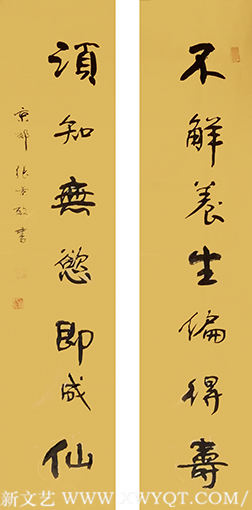 不解養生偏得壽
須知無慾即成仙
新文艺 WWW.XWYQT.COM